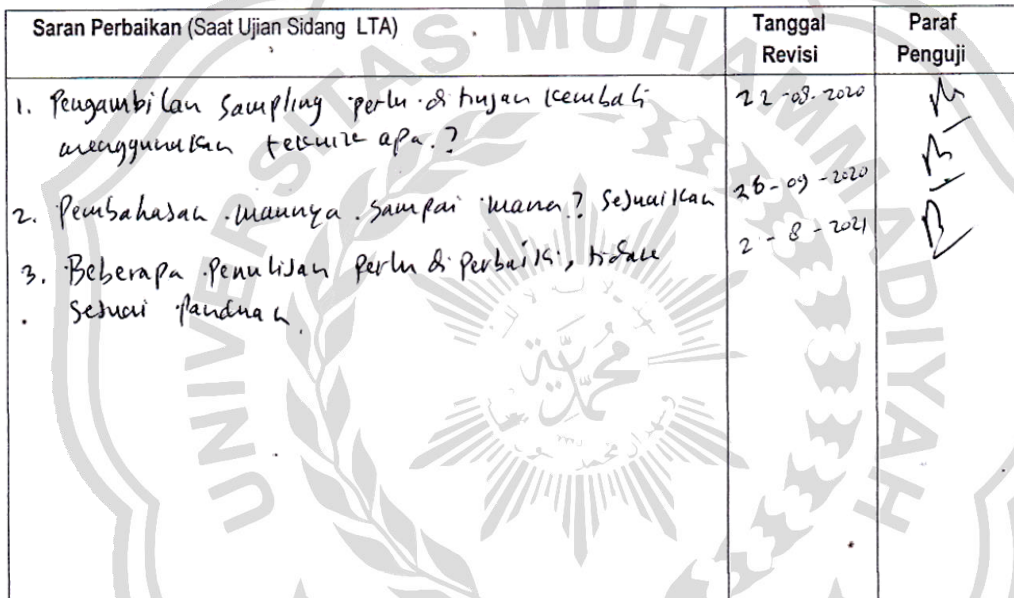 Saran Perbaikan (Saat Ujian Sidang LTA)
Tanggal Revisi
Paraf Penguji
1. Pengambilan Sampling perlu di tinjau kembali
menggunakan teknik apa.?
22-08-2020
2. Pembahasan maunya sampai mana? Sesuaikan
26-09-2020
3. Beberapa Penulisan perlu di perbaiki, tidak
sesuai Panduan.
2-8-2021
UNIVERSITAS MUHAMMADIYAH